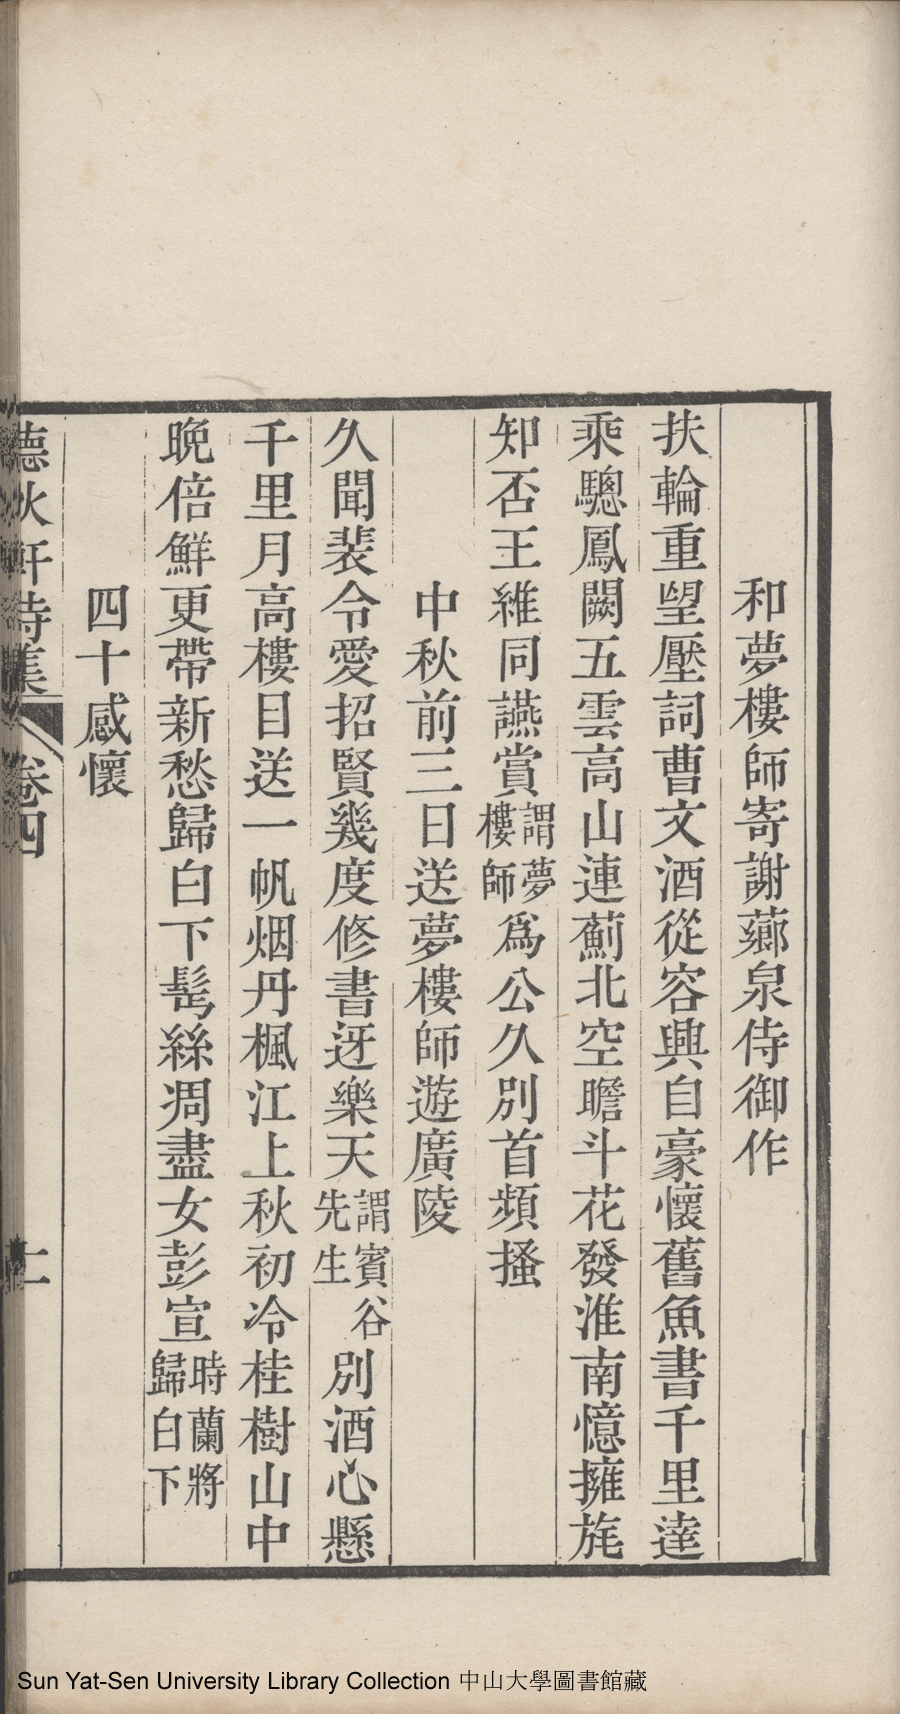 和夢樓師寄謝薌泉侍御作
扶輪重望壓詞曹文酒從容興自豪懷舊魚書千里達
乘驄鳳闕五雲高山連薊北空瞻斗花發淮南憶擁旄
知否王維同讌賞謂夢樓師為公久別首頻搔
中秋前三日送夢樓師遊廣陵
久聞裴令愛招賢幾度修書迓樂天謂賓谷先生別酒心懸
千里月高樓目送一帆烟丹楓江上秋初冷桂樹山中
晚倍鮮更帶新愁歸白下髩絲凋盡女彭宣時蘭將歸白下
四十感懷
聽秋軒詩集 卷四
Sun Yat-Sen University Library Collection 中山大學圖書館藏